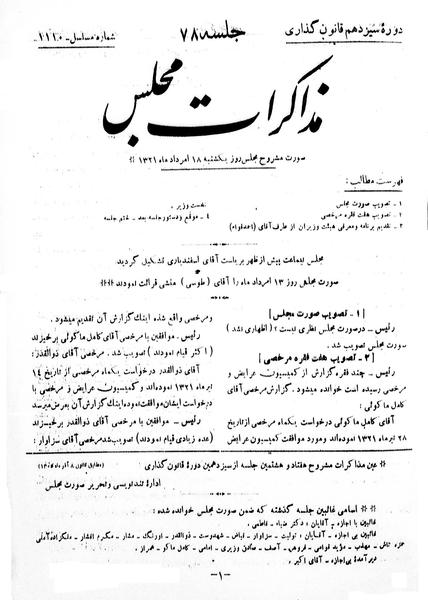 دورهٔ سیزدهم قانون گذاری
جلسه ۷۸
شماره مسلسل -
مذاکرات مجلس
صورت مشروح مجلس روز یکشنبه ۱۸ امرداد ماه ۱۳۲۱ #
فهرست مطالب :
۱ - تصویب صورت مجلس
۲ - تصویب هفت فقره مرخصی
۳ - تقدیم برنامه و معرفی هیئت وزیران از طرف آقای (احمد قوام)
نخست وزیر .
۴ - موقع و دستور جلسه بعد - ختم جلسه
مجلس یکساعت پیش از ظهر بریاست آقای اسفندیاری تشکیل گردید
صورت مجلس روز ۱۳ امرداد ماه را آقای (طوسی) منشی قرائت نمودند ###
[۱ - تصویب صورت مجلس]
رئیس - در صورت مجلس نظری نیست ؟ (اظهاری نشد)
صورت مجلس تصویب شد .
[۲ - تصویب هفت فقره مرخصی]
رئیس - چند فقره گزارش از کمیسیون عرایض و
مرخصی رسیده است خوانده میشود . گزارش مرخصی آقای
کامل ماکولی :
آقای کامل ماکولی درخواست یکماه مرخصی از تاریخ
۲۸ تیر ماه ۱۳۲۱ نموده‌اند و مورد موافقت کمیسیون عرایض
و مرخصی واقع شده اینک گزارش آن تقدیم میشود .
رئیس - موافقین با مرخصی آقای کامل ماکولی برخیزند
(اکثر قیام نمودند) تصویب شد . مرخصی آقای ذوالقدر:
آقای ذوالقدر درخواست یکماه مرخصی از تاریخ ۱۴
تیر ماه ۱۳۲۱ نموده‌اند و کمیسیون عرایض و مرخصی با
درخواست ایشان موافقت نموده اینک گزارش آن بعرض میرسد
رئیس - موافقین با مرخصی آقای ذوالقدر برخیزند
(عده زیادی قیام نمودند) تصویب شد مرخصی آقای سزاوار :
# عین مذاکرات مشروح هفتاد و هشتمین جلسه از سیزدهمین دورهٔ قانون گذاری
(مطابق قانون ۸ آذر ماه
اداره تندنویسی و تحریر صورت مجلس
## اسامی غائبین جلسه گذشته که ضمن صورت مجلس خوانده شده :
غائبین با اجازه - آقایان : دکتر ضیاء - فاطمی .
غائبین بی اجازه - آقایان : تولیت - سزاوار - نباض - شهدوست - ذوالقدر - اورنگ - مشار - مکرم افشار - ملک‌زاده آملی
- مهذب - مؤید قوامی - فروهی - آصف - صادق وزیری - امامی - کامل ماکو -
دیر آمده بی اجازه - آقای اکبر .
- ۱ -